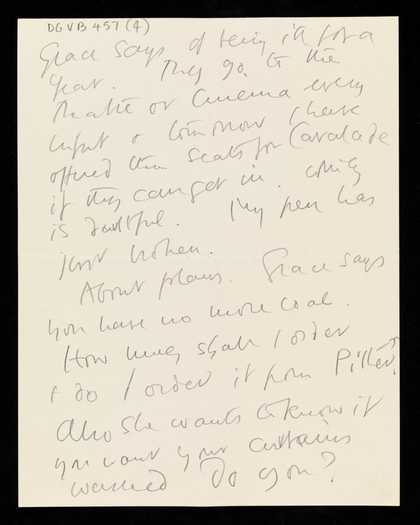 DGVB 457 (4)
Grace says of being ill for a
year. They go to the
Theatre or Cinema every
night & tomorrow I have
offered them seats for Cavalcade
if they can get in.
is doubtful. My pen has
just broken.
About plans. Grace says
you have no more coal.
How much shall I order
& do I order it from Pitter?
Also she wants to know if
you want your curtains
washed Do you?